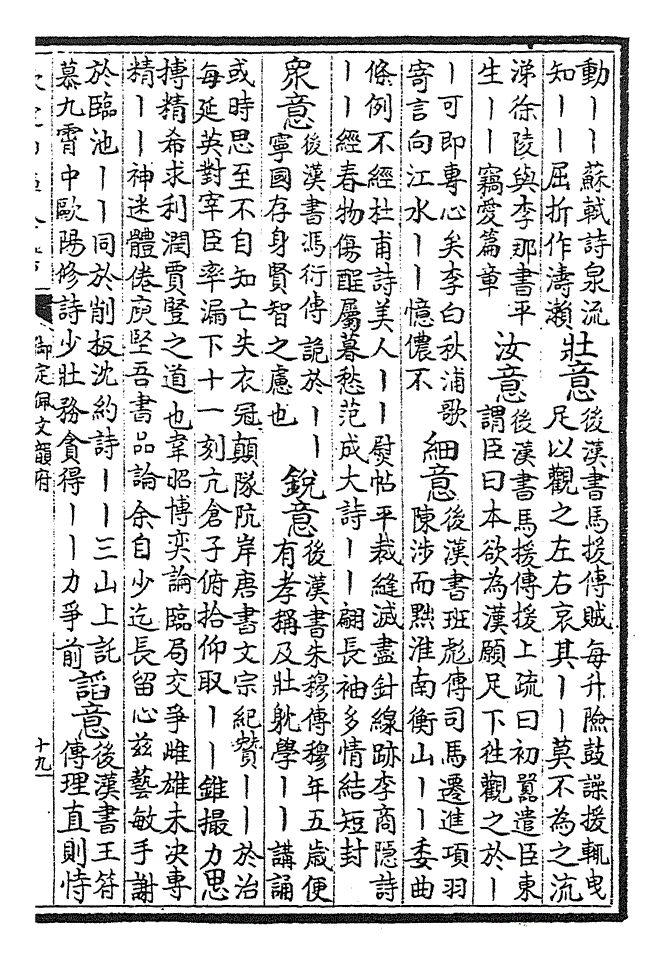 動丨丨蘇軾詩泉流
知丨丨屈折作濤瀨
壯意
後漢書馬援傳賊每升險鼓譟援輒曳
足以觀之左右哀其丨丨莫不為之流
涕徐陵與李那書平
生丨丨竊愛篇章
汝意
後漢書馬援傳援上疏曰初囂遣臣東
謂臣曰本欲為漢願足下徃觀之於丨
丨可即專心矣李白秋浦歌
寄言向江水丨丨憶儂不
細意
後漢書班彪傳司馬遷進項羽
陳涉而黜淮南衡山丨丨委曲
條例不經杜甫詩美人丨丨熨帖平裁縫滅盡針線跡李商隱詩
丨丨經春物傷酲屬暮愁范成大詩丨丨翩長袖多情結短封
衆意
後漢書馮衍傳詭於丨丨
寧國存身賢智之慮也
銳意
後漢書朱穆傳穆年五歲便
有孝稱及壯躭學丨丨講誦
或時思至不自知亡失衣冠顛隊阬岸唐書文宗紀贊丨丨於治
每延英對宰臣率漏下十一刻亢倉子俯拾仰取丨丨錐撮力思
摶精希求利潤賈豎之道也韋昭博奕論臨局交爭雌雄未決專
精丨丨神迷體倦庾堅吾書品論余自少迄長留心兹藝敏手謝
於臨池丨丨同於削板沈約詩丨丨三山上託
慕九霄中歐陽修詩少壯務貪得丨丨力爭前
謟意
後漢書王符
傳理直則恃
御定佩文韻府
十九